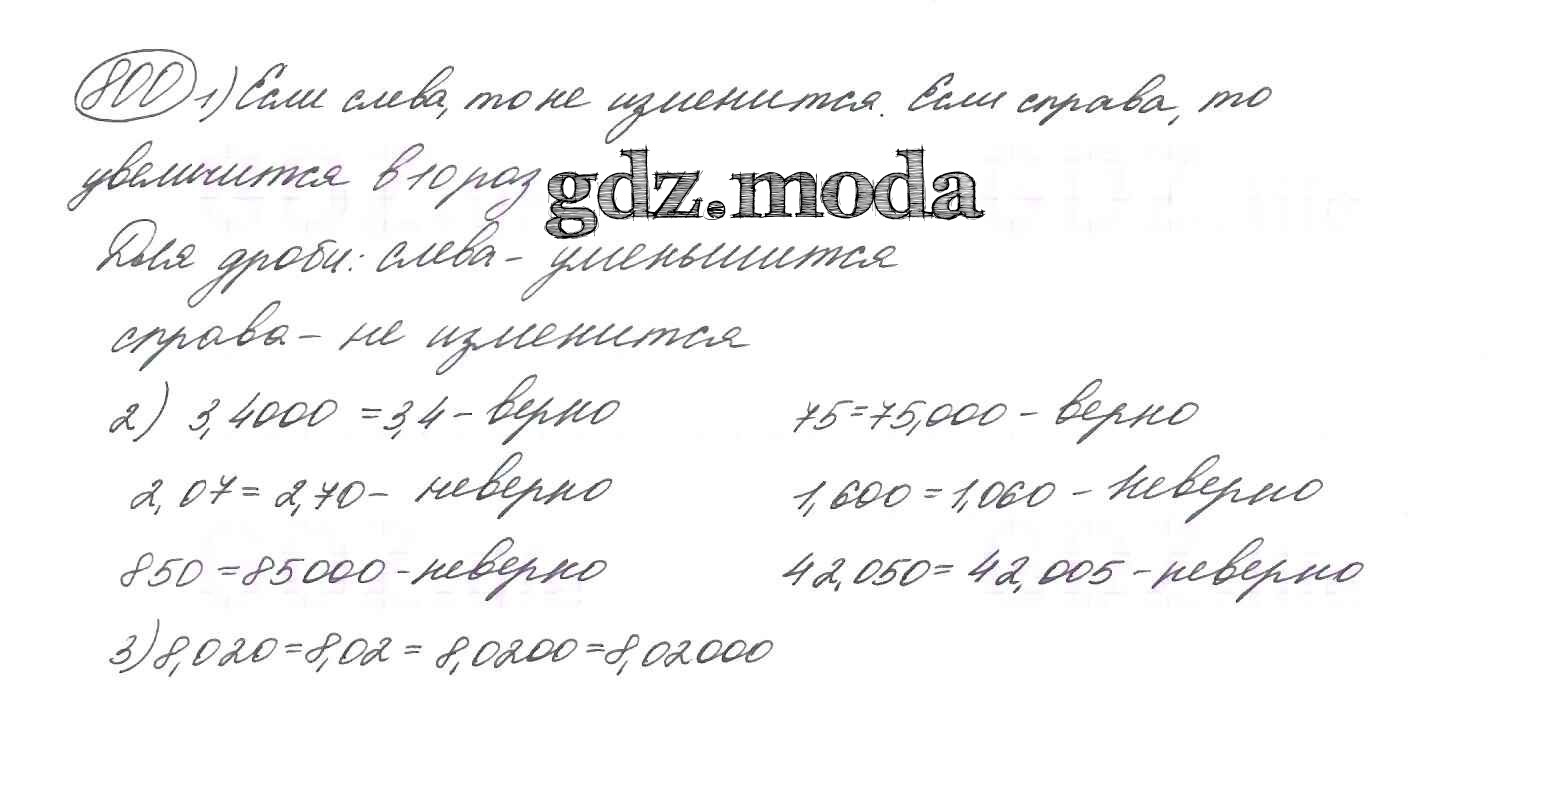 800 1) Если слева, то не изменится. Если справа, то
увеличится в 10 раз
gdz.moda
Для дроби: слева - уменьшится
справа - не изменится
2) 3,4000 = 3,4 - верно 75 = 75,000 - верно
2,07 = 2,70 - неверно 1,600 = 1,060 - неверно
850 = 85000 - неверно 42,050 = 42,005 - неверно
3) 8,020 = 8,02 = 8,0200 = 8,02000